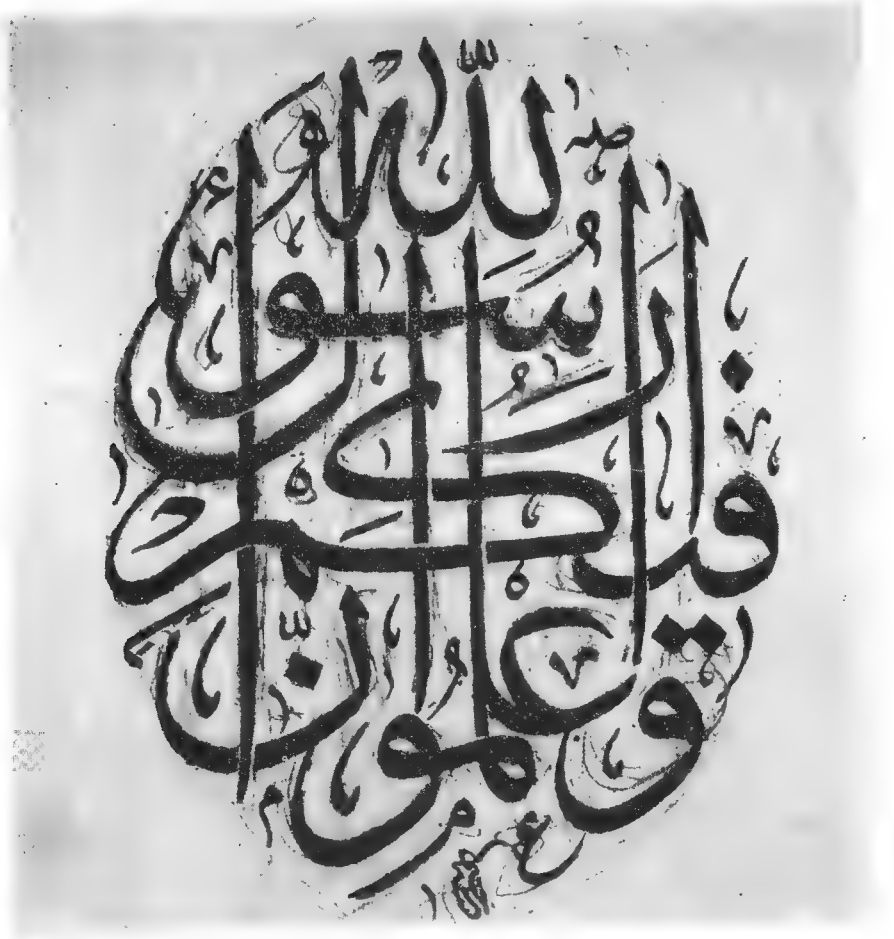 وَاعْلَمُوا أَنَّ فِيكُمْ رَسُولَ اللهِ